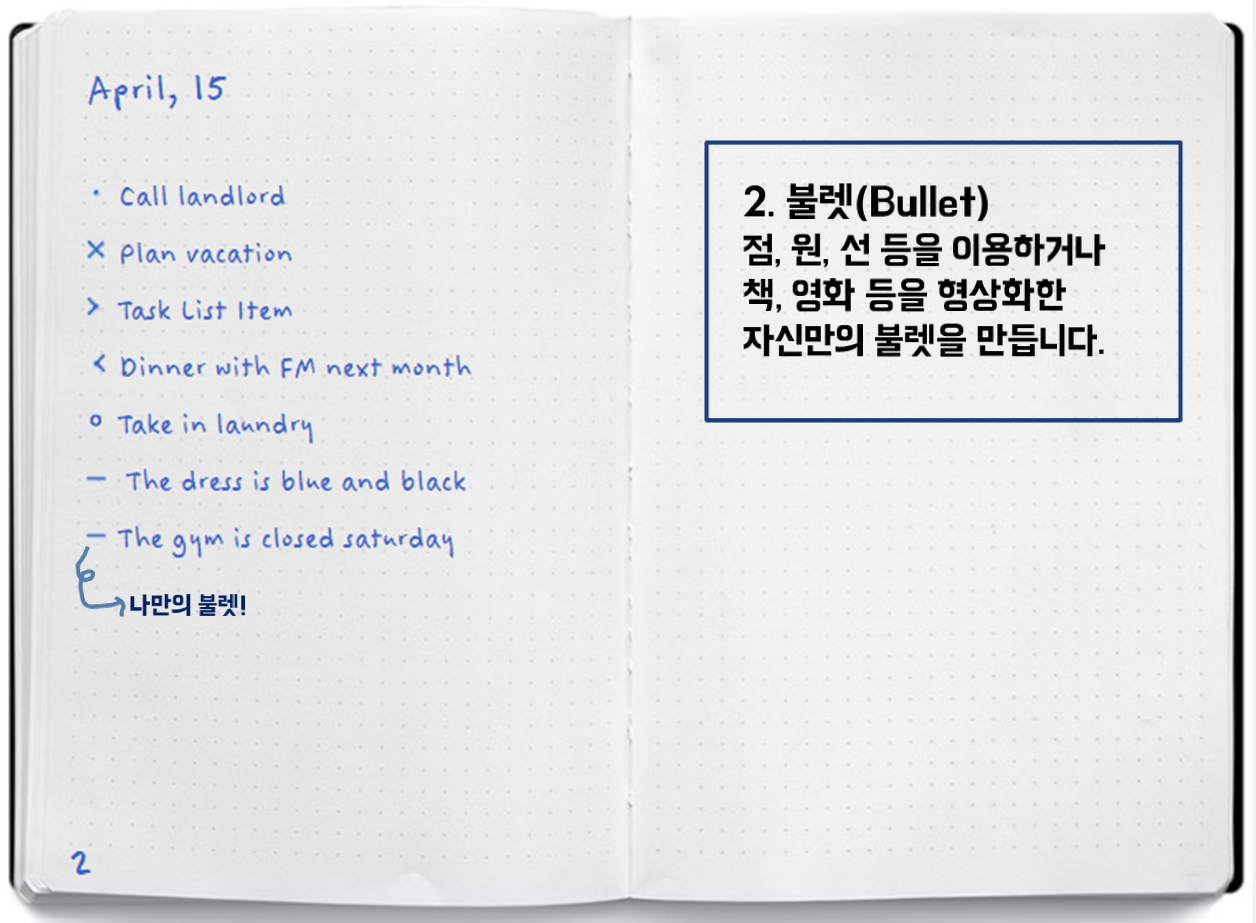 April, 15
· Call landlord
× Plan vacation
> Task List Item
< Dinner with FM next month
o Take in laundry
— The dress is blue and black
— The gym is closed saturday
나만의 불렛!
2
2. 불렛(Bullet)
점, 원, 선 등을 이용하거나
책, 영화 등을 형상화한
자신만의 불렛을 만듭니다.